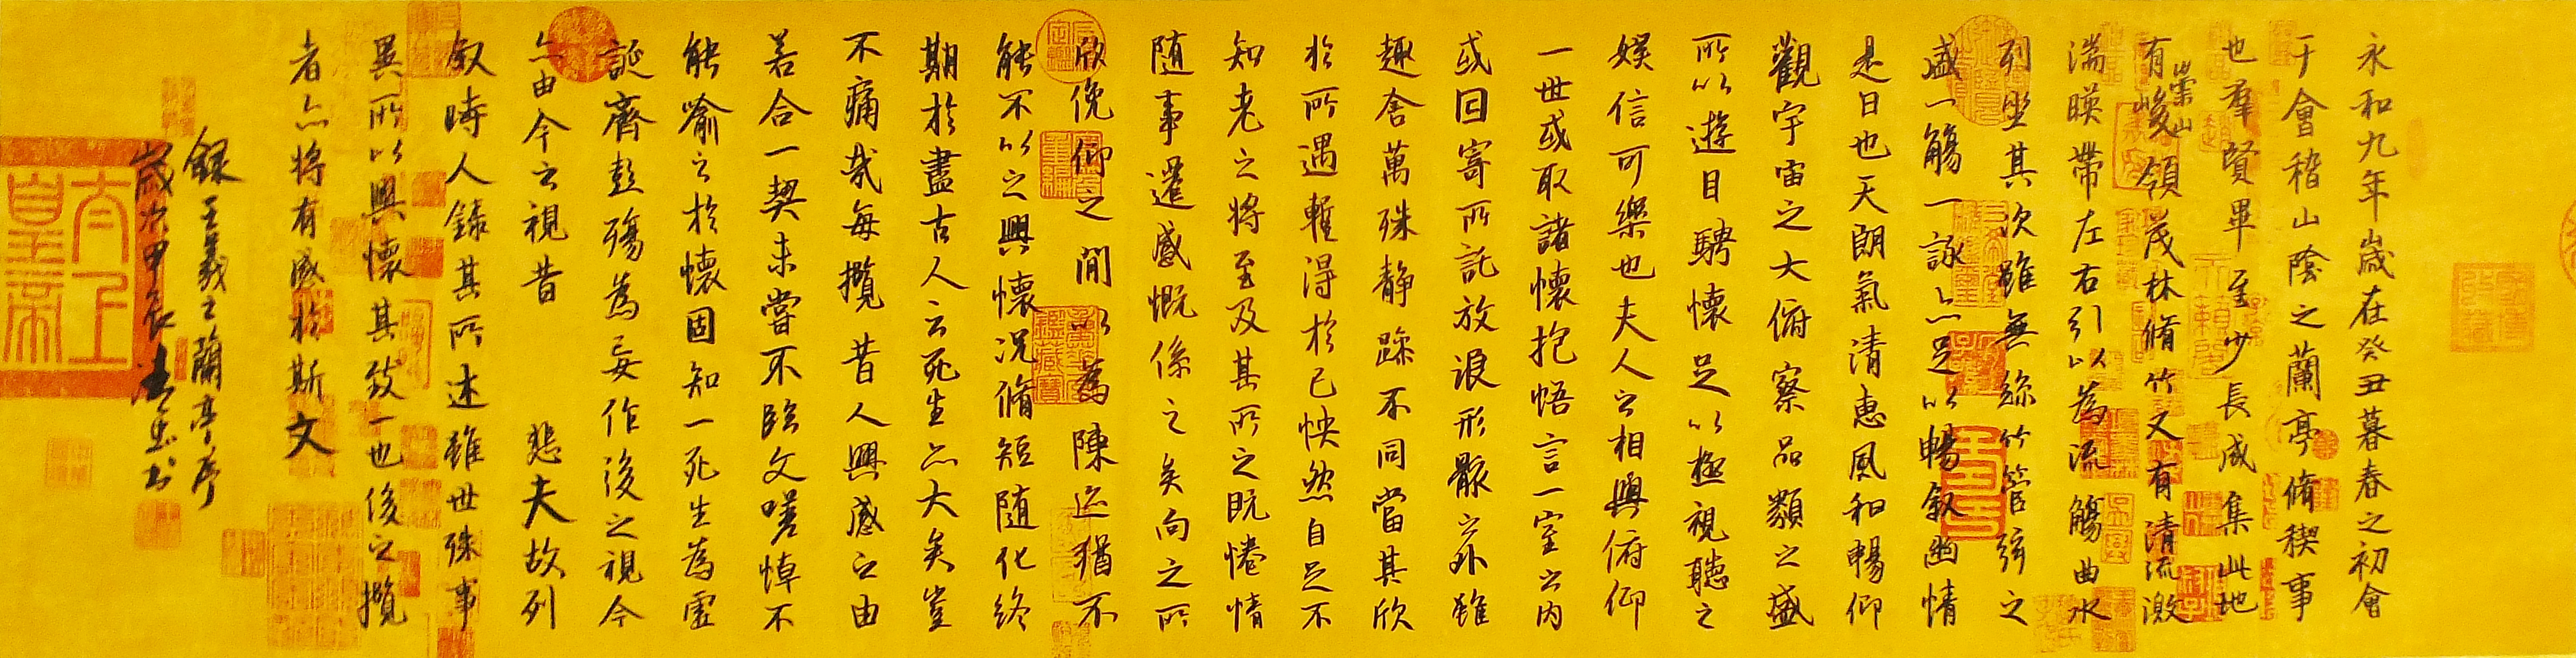 永和九年歲在癸丑暮春之初會
于會稽山陰之蘭亭脩稧事
也羣賢畢至少長咸集此地
有崇山峻領茂林脩竹又有清流激
湍暎帶左右引以為流觴曲水
列坐其次雖無絲竹管弦之
盛一觴一詠亦足以暢叙幽情
是日也天朗氣清惠風和暢仰
觀宇宙之大俯察品類之盛
所以遊目騁懷足以極視聽之
娛信可樂也夫人之相與俯仰
一世或取諸懷抱悟言一室之內
或因寄所託放浪形骸之外雖
趣舍萬殊静躁不同當其欣
於所遇暫得於己怏然自足不
知老之將至及其所之既惓情
随事遷感慨係之矣向之所
欣俛仰之閒以為陳迹猶不
能不以之興懷況脩短随化終
期於盡古人云死生亦大矣豈
不痛哉每攬昔人興感之由
若合一契未嘗不臨文嗟悼不
能喻之於懷固知一死生為虛
誕齊彭殤為妄作後之視今
亦由今之視昔 悲夫故列
叙時人錄其所述雖世殊事
異所以興懷其致一也後之攬
者亦將有感於斯文
錄王羲之蘭亭序
歲次甲辰 書
太上皇帝